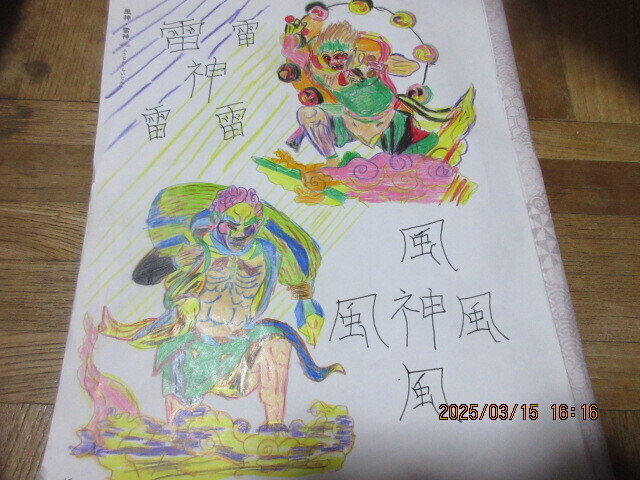 風神 雷神
雷 雷
神
雷 雷
風
風 神 風
風
2025/03/15 16:16